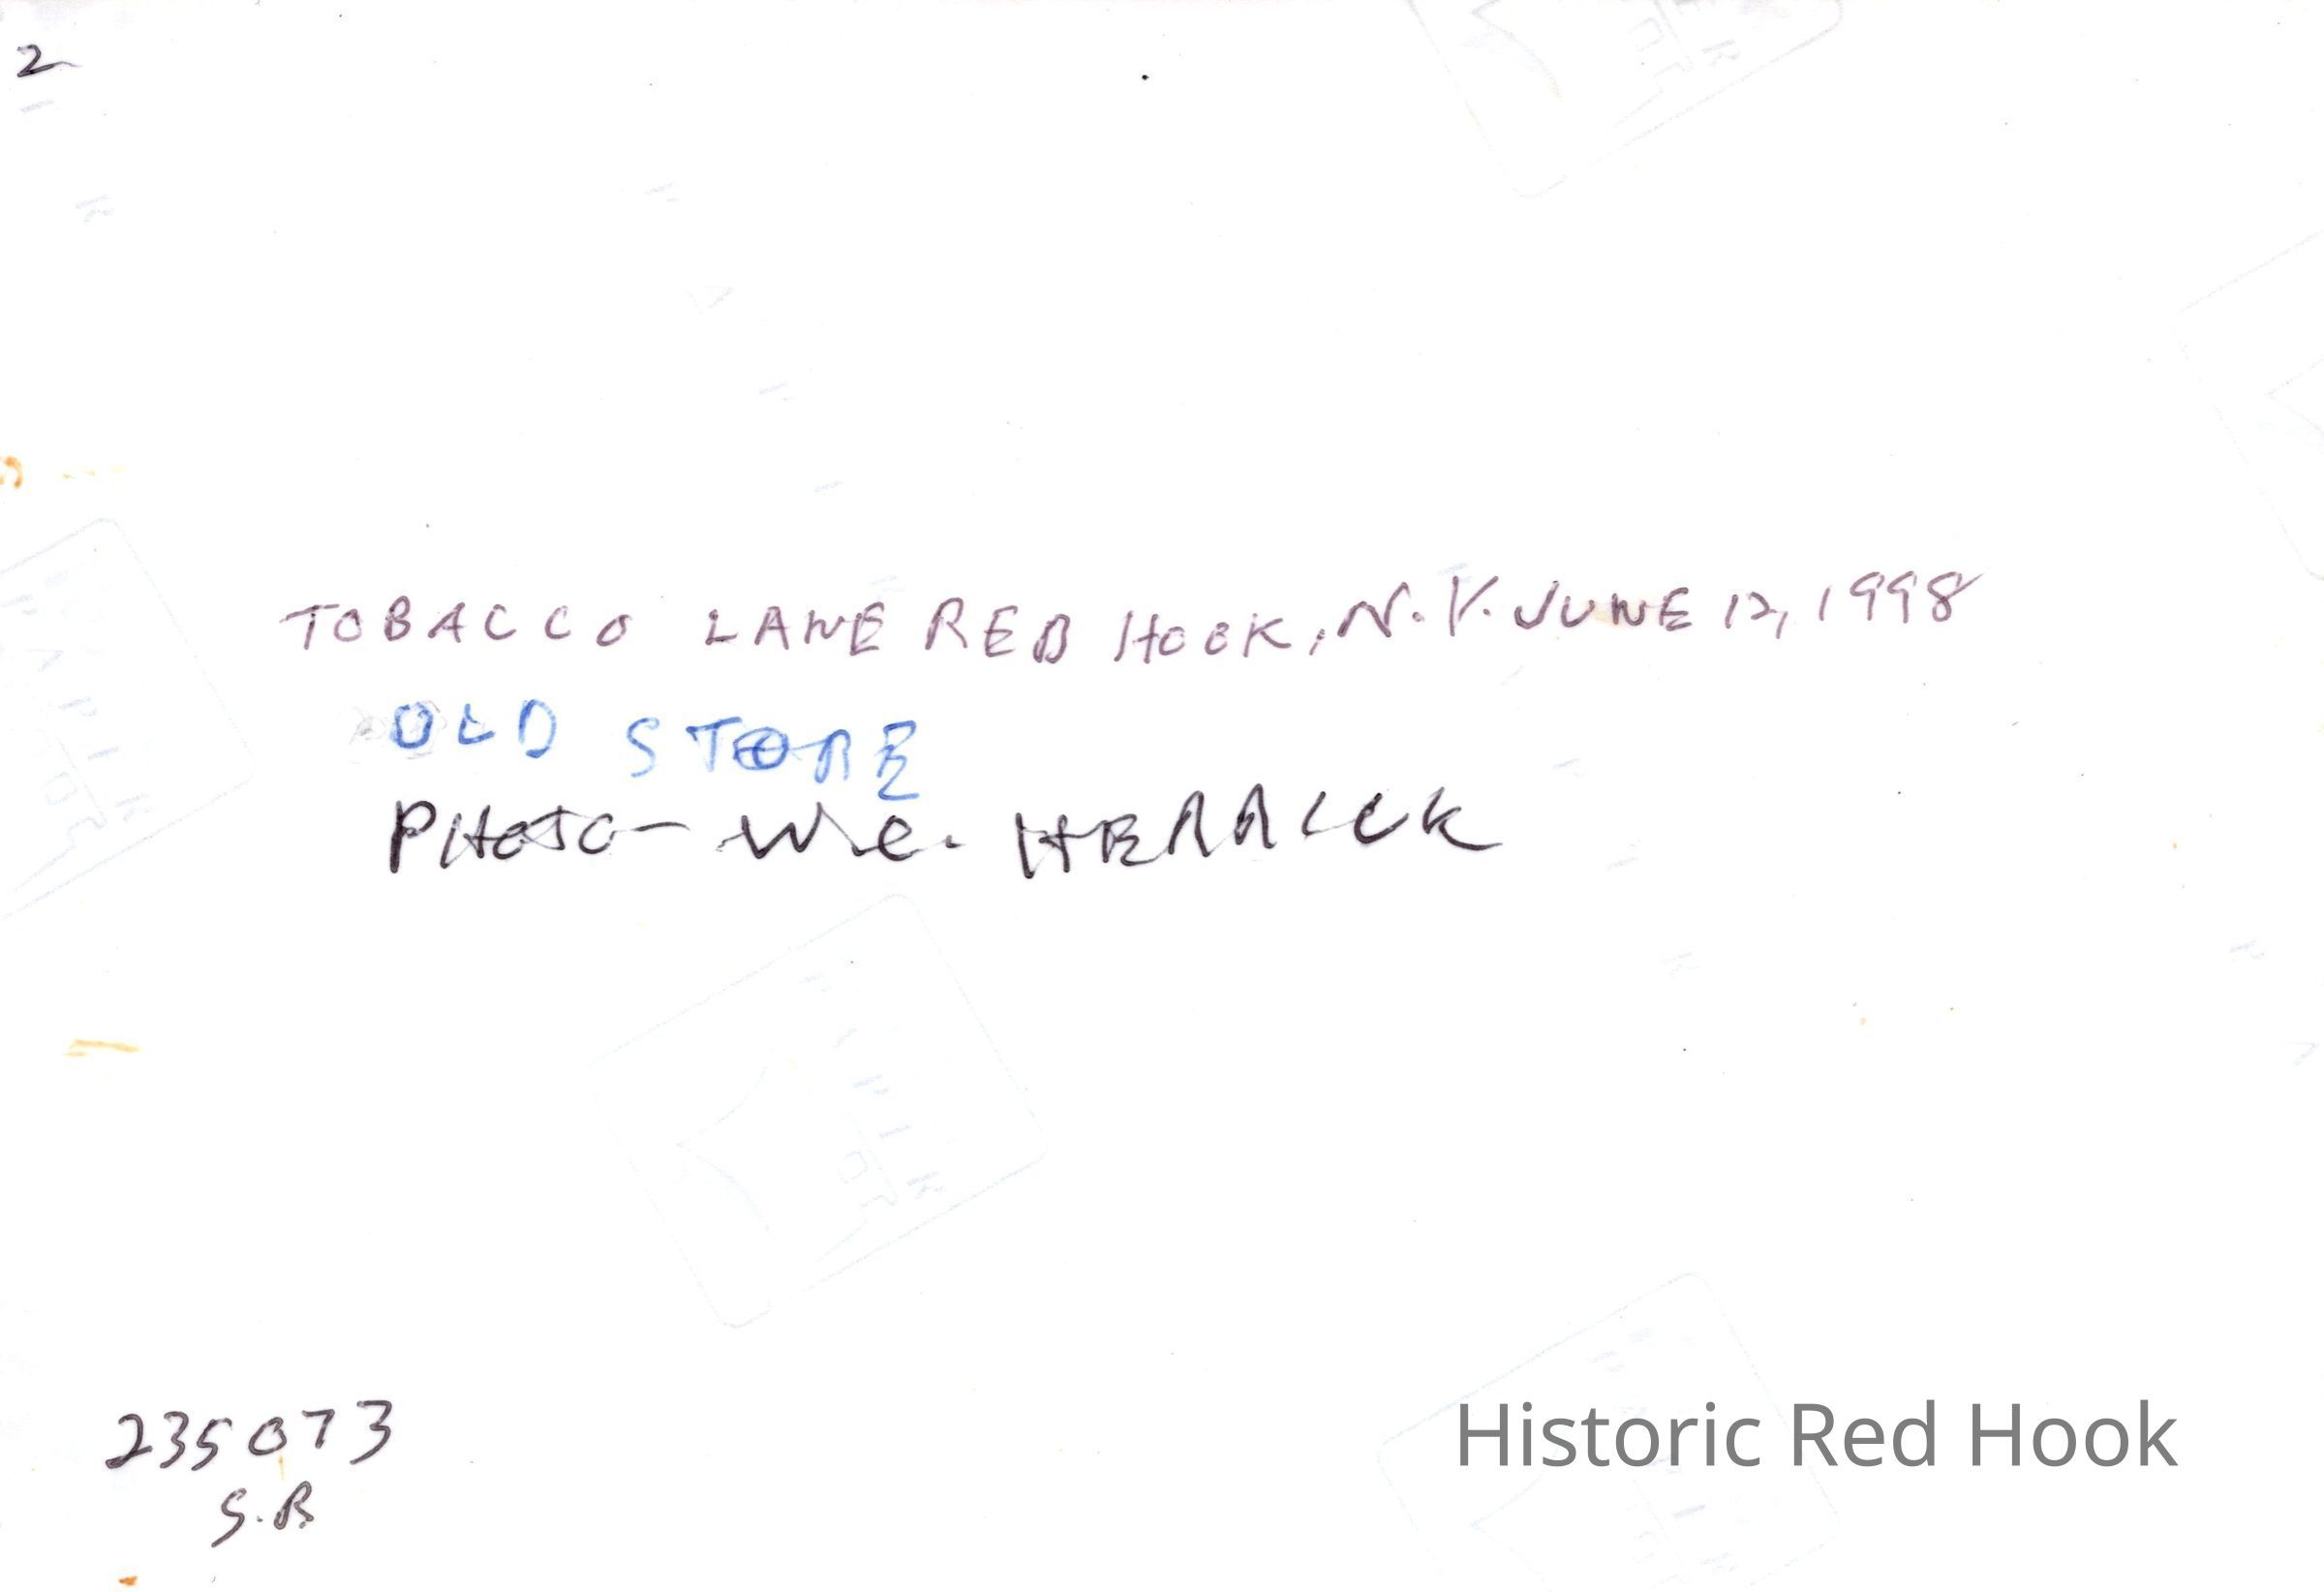 2
TOBACCO LANE RED HOOK, N.Y. JUNE 12, 1998
OLD STORE
PHOTO - W.C. HERRICK
235073
S.B
Historic Red Hook